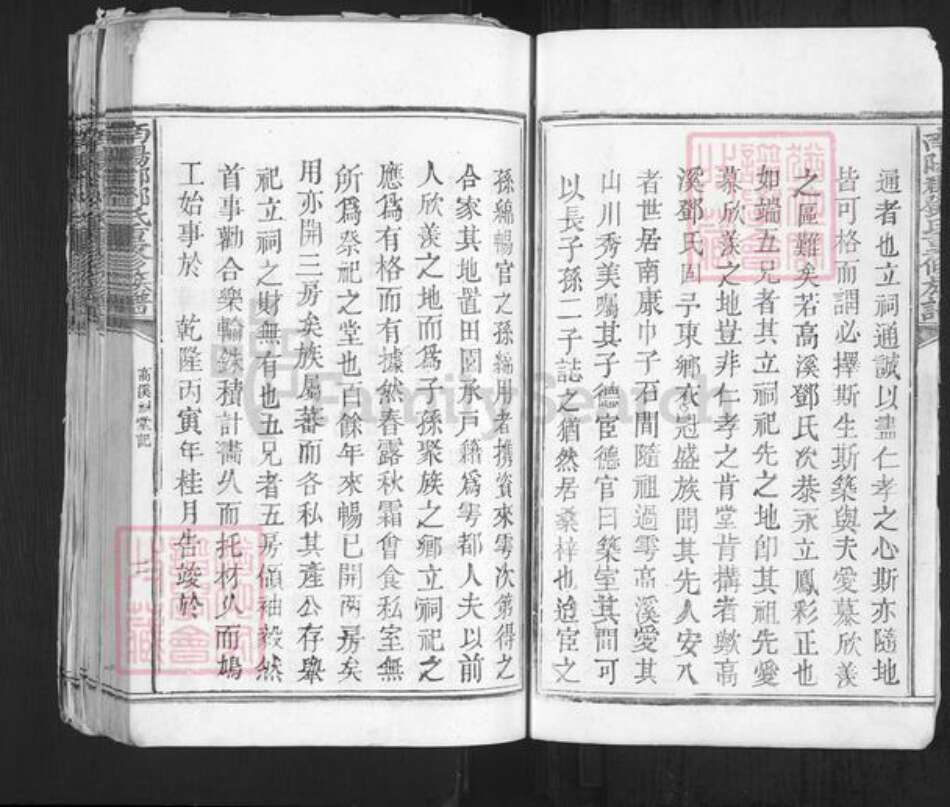 通者也立祠通誠以盡仁孝之心斯亦隨地
皆可格而謂必擇斯生斯築與夫愛慕欣羨
之區難矣若高溪鄧氏次恭永立鳳彩正也
如端五兄者其立祠祀先之地即其祖先愛
慕欣羨之地豈非仁孝之肯堂肯搆者歟高
溪鄧氏固予東鄉衣冠盛族聞其先人安八
者世居南康巾子石間隨祖過雩高溪愛其
山川秀美囑其子德宦德官曰築室其間可
以長子孫二子誌之猶然居桑梓也迨宦之
孫綿暢官之孫綿用者携資來雩次第得之
合家其地置田園承戶籍爲雩都人夫以前
人欣羨之地而爲子孫聚族之鄉立祠祀之
應爲有格而有據然春露秋霜曾食私室無
所爲祭祀之堂也百餘年來暢已開兩房矣
用亦開三房矣族屬蕃而各私其產公存舉
祀立祠之財無有也五兄者五房領袖毅然
首事勸合樂輸銖積計蓄久而托材久而鳩
工始事於 乾隆丙寅年桂月告竣於
高溪祠堂記
FamilySearch